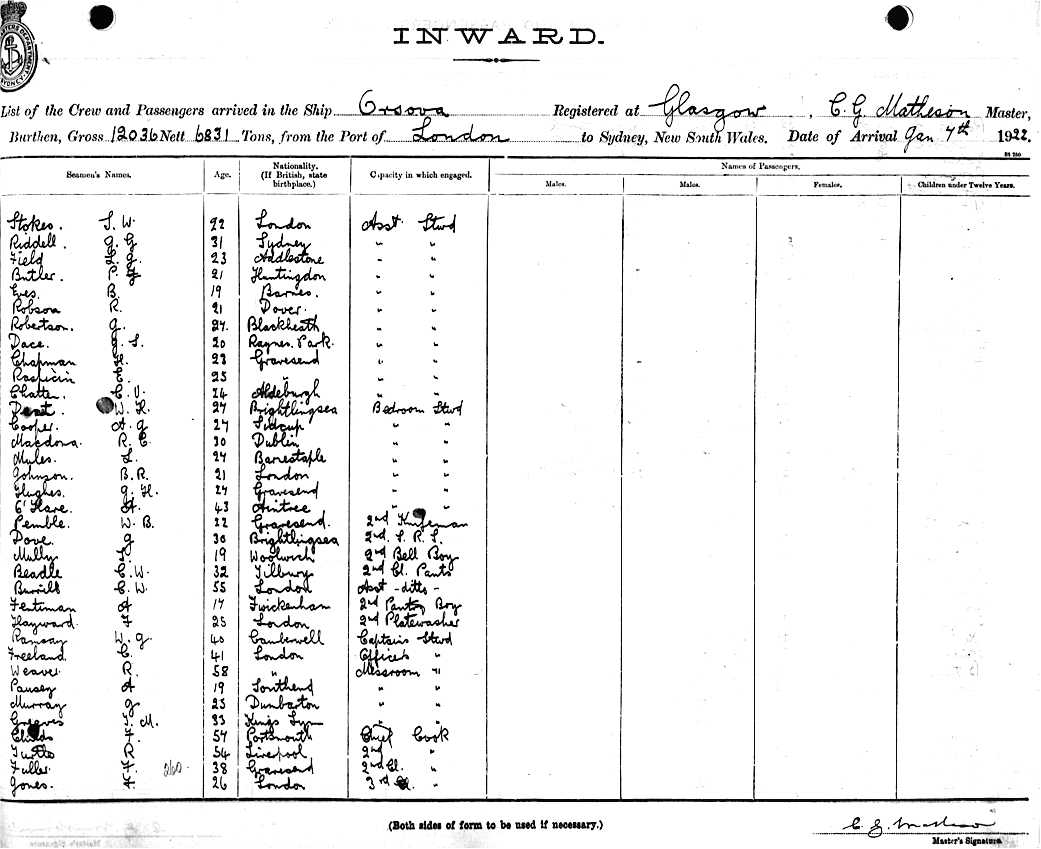 INWARD.
List of the Crew and Passengers arrived in the Ship Orsova Registered at Glasgow, C. G. Matheson Master,
Burthen, Gross 12036 Nett 6831 Tons, from the Port of London to Sydney, New South Wales. Date of Arrival Jan 7th 1922.
Seamen's Names. Age. Nationality. (If British, state birthplace.) Capacity in which engaged. Names of Passengers.
Males. Males. Females. Children under Twelve Years.
Stokes. S. W. 22 London Asst Stwd
Riddell. G. G. 31 Sydney " "
Field 23 Addlestone " "
Butler. P. 21 Huntingdon " "
Eves. B. 19 Barnes. " "
Robson R. 21 Dover. " "
Robertson. G. 27. Blackheath " "
Dace. G. S. 20 Raynes Park. " "
Chapman 23 Gravesend " "
25 " " "
Chatten. C. V. 24 Aldeburgh " "
W. H. 27 Brightlingsea Bedroom Stwd
Cooper. A. G 27 Sidcup " "
Macdona. R. C. 30 Dublin " "
Myles. L. 27 Barnstaple " "
Johnson. B. R. 21 London " "
Hughes. G. H. 27 Gravesend " "
O'Hare. A. 43 Aintree " "
Pemble. W. B. 22 Gravesend. 2nd Knifeman
Dove. G 30 Brightlingsea 2nd. S. R. S.
Mully 19 Woolwich 2nd Bell Boy
Beadle C. W. 32 Tilbury 2nd Cl. Pants
C. W. 55 London Asst - ditto -
Fentiman A 17 Twickenham 2nd Pantry Boy
Hayward. F 25 London 2nd Platewasher
Ramsay W. G. 40 Camberwell Captains Stwd
Freeland. C. 41 London Officers "
Weaver. R. 58 " Messroom "
Pausey A 19 Southend " "
Murray G 25 Dunbarton " "
Greeves S. M. 33 Kings Lynn " "
Childs F. 57 Portsmouth Chief Cook
R 54 Liverpool 2nd "
Fuller. F. 260 38 Gravesend 2nd Cl. "
Jones. A 26 London 3rd Cl. "
(Both sides of form to be used if necessary.)
C. G. Matheson
Master's Signature.